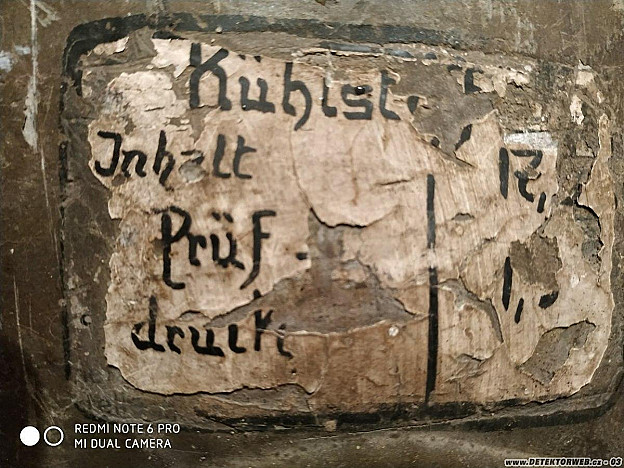 Kühlst.
Inhalt
Prüf-
druck
REDMI NOTE 6 PRO
MI DUAL CAMERA
www.DETEKTORWEB.cz - 03